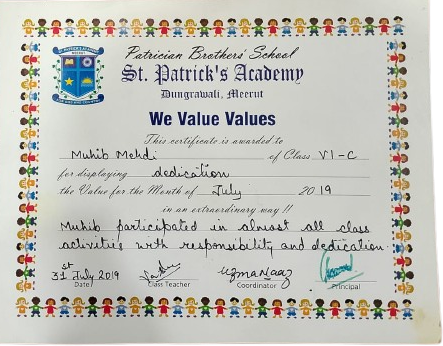 ST. PATRICK'S ACADEMY
MEERUT
Patrician Brothers' School
St. Patrick's Academy
Dungrawali, Meerut
We Value Values
This certificate is awarded to
Muhib Mehdi of Class VI-C
for displaying dedication
the Value for the Month of July 2019
in an extraordinary way !!
Muhib participated in almost all class
activities with responsibility and dedication.
31st July 2019 Uzma Naaz
Date Class Teacher Coordinator Principal